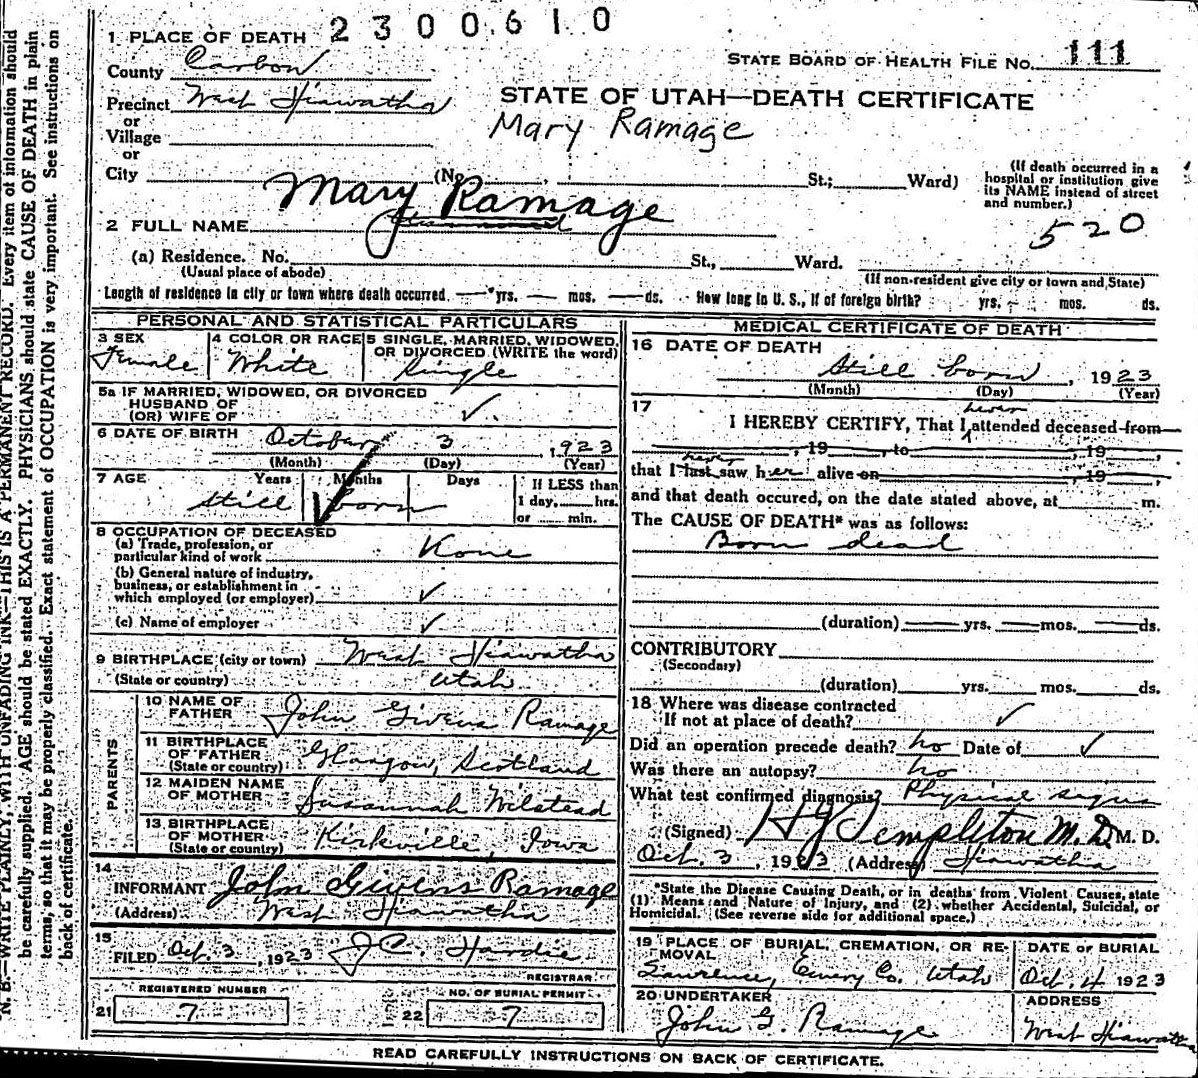 2300610
1 PLACE OF DEATH
STATE BOARD OF HEALTH FILE NO. 111
County Carbon
Precinct West Hiawatha
STATE OF UTAH—DEATH CERTIFICATE
Mary Ramage
or
Village
or
City (No. St.; Ward)
(If death occurred in a
hospital or institution give
its NAME instead of street
and number.)
520
2 FULL NAME Mary Ramage
(a) Residence. No. St., Ward.
(Usual place of abode)
(If non-resident give city or town and State)
Length of residence in city or town where death occurred. — yrs. — mos. — ds. How long in U. S., if of foreign birth? yrs. mos. ds.
PERSONAL AND STATISTICAL PARTICULARS
3 SEX
Female
4 COLOR OR RACE
White
5 SINGLE, MARRIED, WIDOWED,
OR DIVORCED (WRITE the word)
Single
5a IF MARRIED, WIDOWED, OR DIVORCED
HUSBAND OF
(OR) WIFE OF ✓
6 DATE OF BIRTH October 3, 1923
(Month) (Day) (Year)
7 AGE Years Months Days
Still born
If LESS than
1 day, hrs.
or min.
8 OCCUPATION OF DECEASED
(a) Trade, profession, or
particular kind of work None
(b) General nature of industry,
business, or establishment in
which employed (or employer) ✓
(c) Name of employer ✓
9 BIRTHPLACE (city or town) West Hiawatha
(State or country) Utah
PARENTS
10 NAME OF
FATHER John Givens Ramage
11 BIRTHPLACE
OF FATHER
(State or country) Glasgow, Scotland
12 MAIDEN NAME
OF MOTHER Susannah Wilstead
13 BIRTHPLACE
OF MOTHER
(State or country) Kirkville, Iowa
14
INFORMANT John Givens Ramage
(Address) West Hiawatha
15
FILED Oct. 3, 1923 J C. Hardie
REGISTRAR
REGISTERED NUMBER
21 7
NO. OF BURIAL PERMIT
22 7
MEDICAL CERTIFICATE OF DEATH
16 DATE OF DEATH
Still born, 1923
(Month) (Day) (Year)
17
never
I HEREBY CERTIFY, That I attended deceased from
, 19 , to , 19 ,
never
that I last saw her alive on , 19 ,
and that death occured, on the date stated above, at m.
The CAUSE OF DEATH* was as follows:
Born dead
(duration) yrs. mos. ds.
CONTRIBUTORY
(Secondary)
(duration) yrs. mos. ds.
18 Where was disease contracted
If not at place of death? ✓
Did an operation precede death? no Date of ✓
Was there an autopsy? no
What test confirmed diagnosis? Physical signs
(Signed) H J Templeton M.D. M. D.
Oct. 3, 1923 (Address) Hiawatha
*State the Disease Causing Death, or in deaths from Violent Causes, state
(1) Means and Nature of Injury, and (2) whether Accidental, Suicidal, or
Homicidal. (See reverse side for additional space.)
19 PLACE OF BURIAL, CREMATION, OR RE-
MOVAL
Lawrence, Emery Co. Utah
DATE OF BURIAL
Oct. 4 1923
20 UNDERTAKER
John G. Ramage
ADDRESS
West Hiawatha
READ CAREFULLY INSTRUCTIONS ON BACK OF CERTIFICATE.
N. B.—WRITE PLAINLY, WITH UNFADING INK—THIS IS A PERMANENT RECORD. Every item of information should
be carefully supplied. AGE should be stated EXACTLY. PHYSICIANS should state CAUSE OF DEATH in plain
terms, so that it may be properly classified. Exact statement of OCCUPATION is very important. See instructions on
back of certificate.